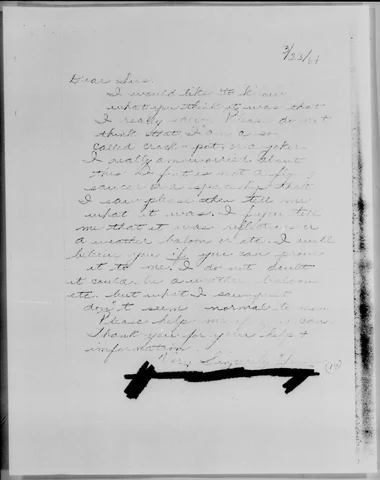 3/23/61
Dear Sirs:
I would like to know
what you think it was that
I really saw. Please do not
think that I am a so
called crack-pot, or a joker.
I really am worried about
this. If it is not a flying
saucer or a spaceship that
I saw please then tell me
what it was. If you tell
me that it was reflections or
a weather baloon or etc. I will
believe you if you can prove
it to me. I do not doubt
it could be a weather baloon
etc. but what I saw just
don't seem normal to me.
Please help me if you can.
Thank you for your help +
imformation
Very Sincerely
(14)